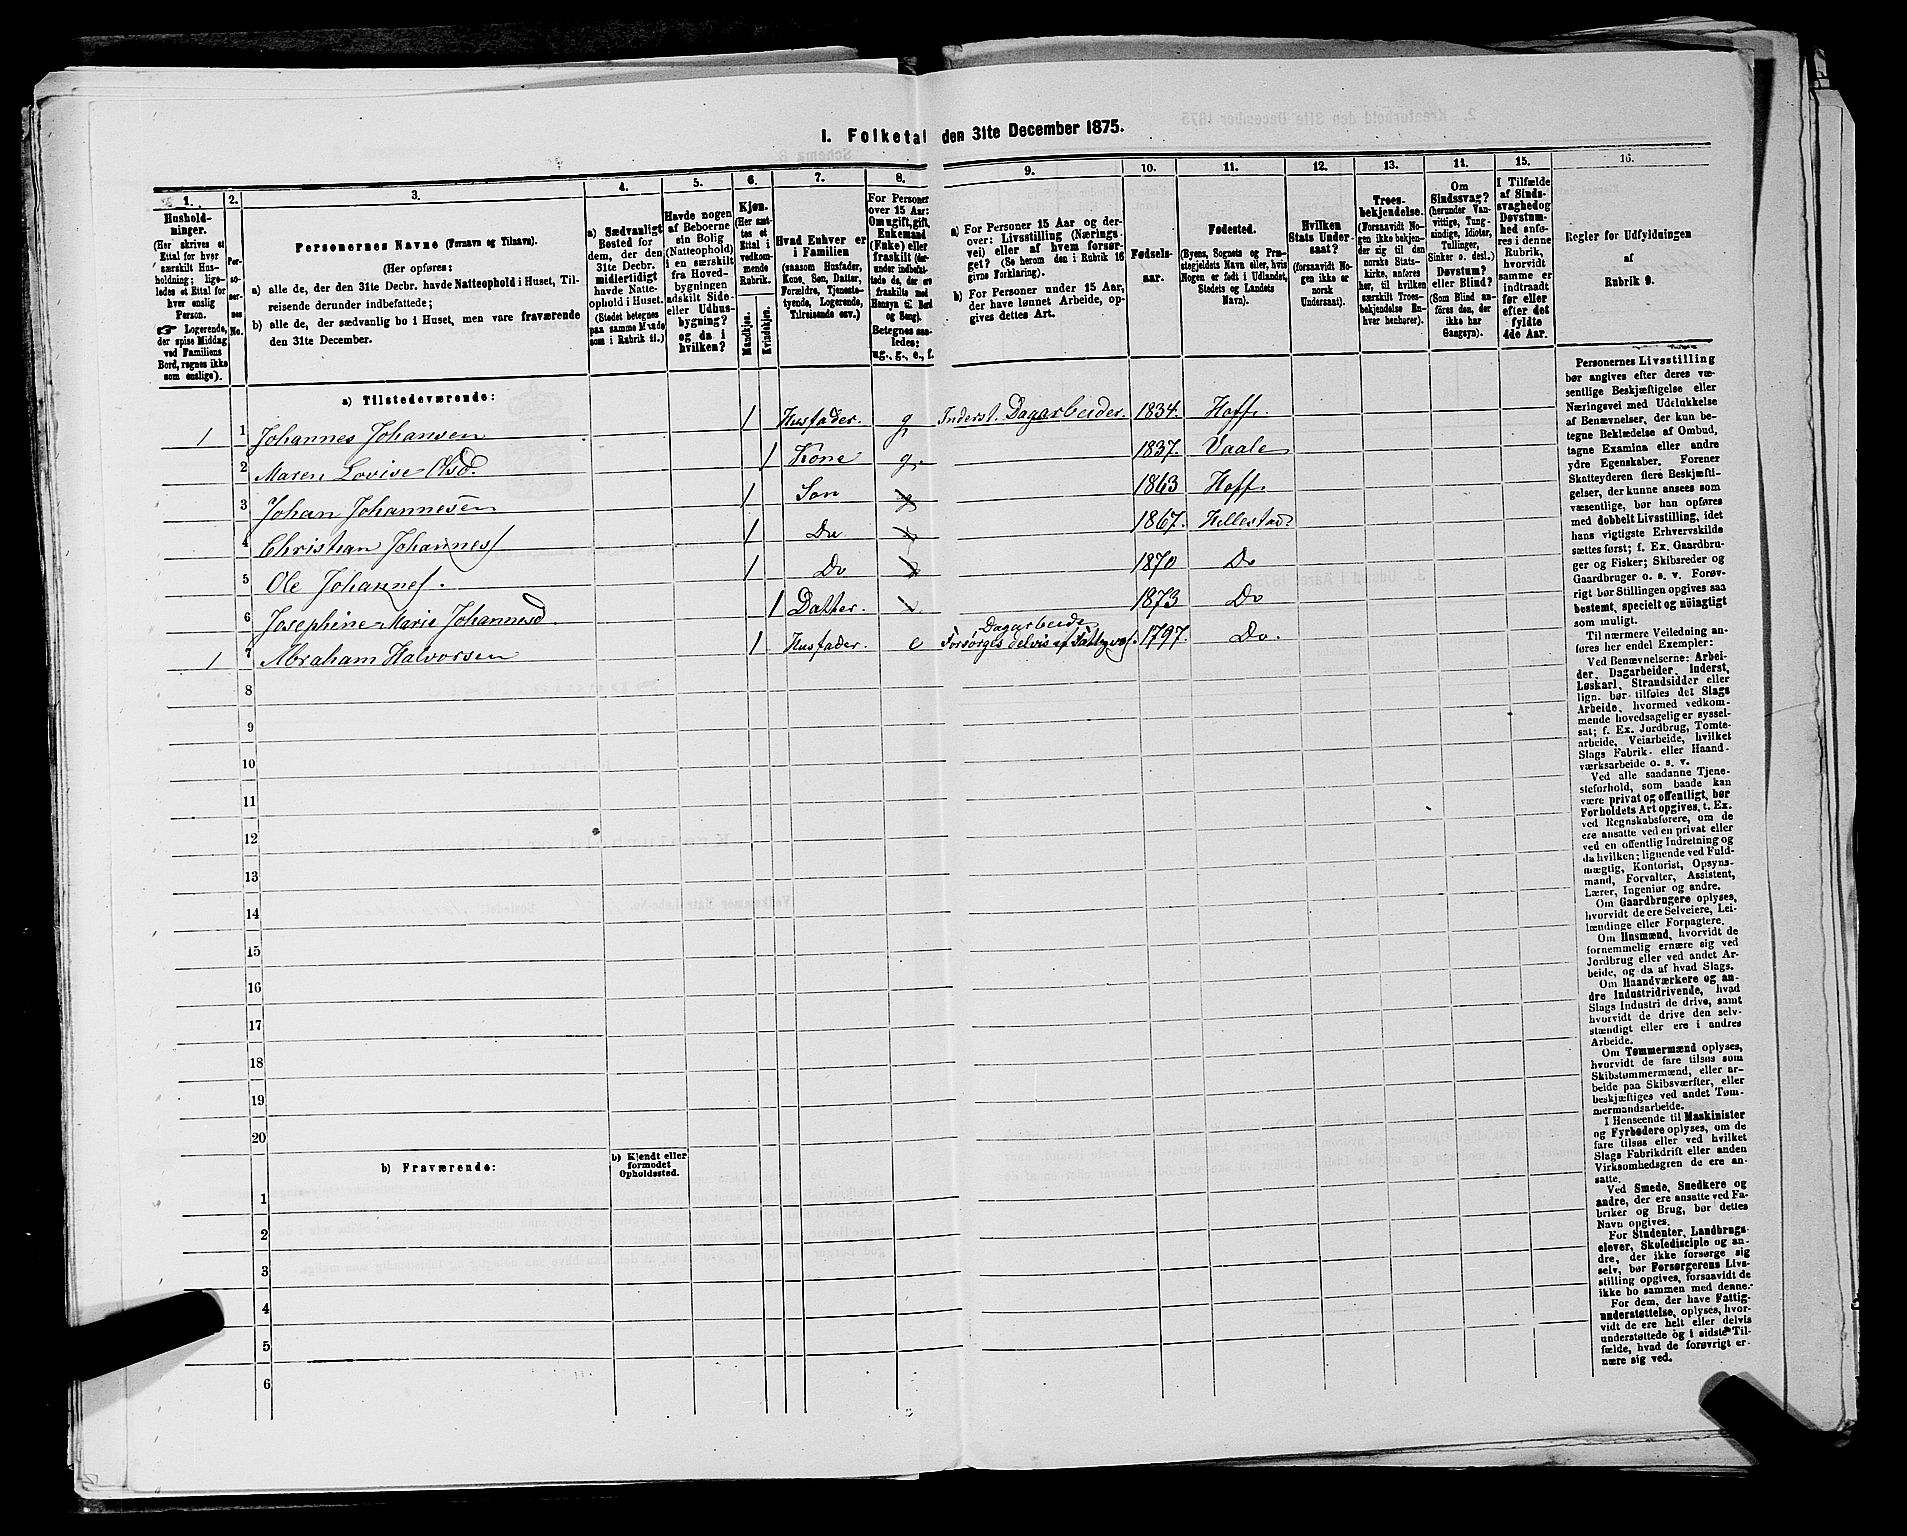 I. Folketal den 31te December 1875.
1. 2. 3. 4. 5. 6. 7. 8. 9. 10. 11. 12. 13. 14. 15. 16.
Hushold-
ninger.
(Her skrives et
Ettal for hver
særskilt Hus-
holdning; lige-
ledes et Ettal for
hver enslig
Person.
☞ Logerende,
der spise Middag
ved Familiens
Bord, regnes ikke
som enslige).
Per-
so-
ner-
nes
No.
Personernes Navne (Fornavn og Tilnavn).
(Her opføres:
a) alle de, der den 31te Decbr. havde Natteophold i Huset, Til-
reisende derunder indbefattede;
b) alle de, der sædvanlig bo i Huset, men vare fraværende
den 31te December.
a) Sædvanligt
Bosted for
dem, der den
31te Decbr.
midlertidigt
havde Natte-
ophold i Huset.
(Stedet betegnes
paa samme Maade
som i Rubrik 11.)
Havde nogen
af Beboerne
sin Bolig
(Natteophold)
i en særskilt
fra Hoved-
bygningen
adskilt Side-
eller Udhus-
bygning?
og da i
hvilken?
Kjøn.
(Her sæt-
tes et
Ettal i
vedkom-
mende
Rubrik.
Mandkjøn.
Kvindekjøn.
Hvad Enhver er
i Familien
(saasom Husfader,
Kone, Søn, Datter,
Forældre, Tjeneste-
tyende, Logerende,
Tilreisende osv.)
For Personer
over 15 Aar:
Om ugift, gift,
Enkemand
(Enke) eller
fraskilt (der-
under indbefat-
tede de, der ere
fraskilte med
Hensyn til Bord
og Seng).
Betegnes saa-
ledes:
ug., g., e., f.
a) For Personer 15 Aar og der-
over: Livsstilling (Nærings-
vei) eller af hvem forsør-
get? (Se herom den i Rubrik 16
givne Forklaring).
b) For Personer under 15 Aar,
der have lønnet Arbeide, op-
gives dettes Art.
Fødsels-
aar.
Fødested.
(Byens, Sognets og Præ-
stegjeldets Navn eller, hvis
Nogen er født i Udlandet,
Stedets og Landets
Navn).
Hvilken
Stats Under-
saat?
(forsaavidt No-
gen ikke er
norsk
Undersaat).
Troes-
bekjendelse.
(Forsaavidt No-
gen ikke bekjen-
der sig til den
norske Stats-
kirke, anføres
her, til hvilken
særskilt Troes-
bekjendelse En-
hver henhører).
Om
Sindssvag?
(herunder Van-
vittige, Tung-
sindige, Idioter,
Tullinger,
Sinker o. desl.)
Døvstum?
eller Blind?
(Som Blind an-
føres den, der
ikke har
Gangsyn).
I Tilfælde
af Sinds-
svaghed og
Døvstum-
hed anfø-
res i denne
Rubrik,
hvorvidt
samme er
indtraadt
før eller
efter det
fyldte
4de Aar.
Regler for Udfyldningen
af
Rubrik 9.
a) Tilstedeværende:
1 1 Johannes Johansen 1 Husfader. g Inderst. Dagarbeider. 1834. Hoff.
2 Maren Lovise Olsd. 1 Kone g. 1837. Vaale
3 Johan Johannesen 1 Søn 1863 Hoff.
4 Christian Johannes 1 Do 1867. Hillestad
5 Ole Johannes. 1 Do 1870 Do
6 Josephine Marie Johannesd 1 Datter. 1873 Do
Dagarbeide
1 7 Abraham Halvorsen 1 Husfader. e Forsørges delvis af Fattigvæs. 1797. Do.
8
9
10
11
12
13
14
15
16
17
18
19
20
b) Fraværende:
b) Kjendt eller
formodet
Opholdssted.
1
2
3
4
5
6
Personernes Livsstilling
bør angives efter deres væ-
sentlige Beskjæftigelse eller
Næringsvei med Udelukkelse
af Benævnelser, der kun be-
tegne Beklædelse af Ombud,
tagne Examina eller andre
ydre Egenskaber. Forener
Skatteyderen flere Beskjæfti-
gelser, der kunne ansees som
væsentlige, bør han opføres
med dobbelt Livsstilling, idet
hans vigtigste Erhvervskilde
sættes først; f. Ex. Gaardbru-
ger og Fisker; Skibsreder og
Gaardbruger o. s. v. Forøv-
rigt bør Stillingen opgives saa
bestemt, specielt og nöiagtigt
som muligt.
Til nærmere Veiledning an-
føres her endel Exempler:
Ved Benævnelserne: Arbei-
der, Dagarbeider, Inderst,
Løskarl, Strandsidder eller
lign. bør tilføies det Slags
Arbeide, hvormed vedkom-
mende hovedsagelig er syssel-
sat; f. Ex. Jordbrug, Tomte-
arbeide, Veiarbeide, hvilket
Slags Fabrik- eller Haand-
værksarbeide o. s. v.
Ved alle saadanne Tjene-
steforhold, som baade kan
være privat og offentligt, bør
Forholdets Art opgives, t. Ex.
ved Regnskabsførere, om de
ere ansatte ved en privat eller
ved en offentlig Indretning og
da hvilken; lignende ved Fuld-
mægtig, Kontorist, Opsyns-
mand, Forvalter, Assistent,
Lærer, Ingeniør og andre.
Om Gaardbrugere oplyses,
hvorvidt de ere Selveiere, Lei-
lændinge eller Forpagtere.
Om Husmænd, hvorvidt de
fornemmelig ernære sig ved
Jordbrug eller ved andet Ar-
beide, og da af hvad Slags.
Om Haandværkere og an-
dre Industridrivende, hvad
Slags Industri de drive, samt
hvorvidt de drive den selv-
stændigt eller ere i andres
Arbeide.
Om Tømmermænd oplyses,
hvorvidt de fare tilsøs som
Skibstømmermænd, eller ar-
beide paa Skibsværfter, eller
beskjæftiges ved andet Tøm-
mermandsarbeide.
I Henseende til Maskinister
og Fyrbødere oplyses, om de
fare tilsøs eller ved hvilket
Slags Fabrikdrift eller anden
Virksomhedsgren de ere an-
satte.
Ved Smede, Snedkere og
andre, der ere ansatte ved Fa-
briker og Brug, bør dettes
Navn opgives.
For Studenter, Landbrugs-
elever, Skoledisciple og an-
dre, der ikke forsørge sig
selv, bør Forsørgerens Livs-
stilling opgives, forsaavidt de
ikke bo sammen med denne.
For dem, der have Fattig-
understøttelse, oplyses, hvor-
vidt de ere helt eller delvis
understøttede og i sidste Til-
fælde, hvad de forøvrigt er-
nære sig ved.